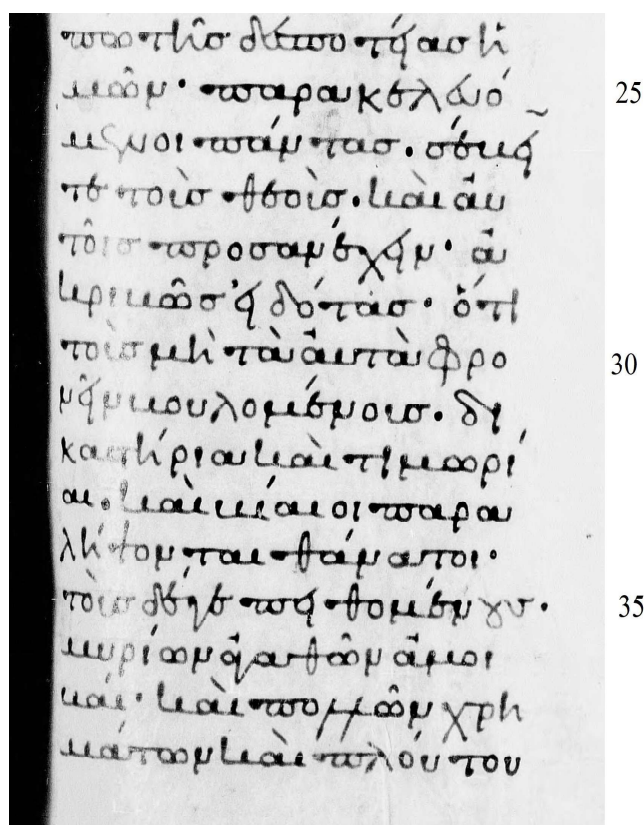 προ τῆς δεσποτείας ἡ
μῶν· παρακελευό 25
μενοι πάντας. σέβειν
τε τοῖς θεοῖς. καὶ αὐ
τοῖς προσανέχειν· ἀ
κριβῶς εἰδότας· ὅτι
τοῖς μὴ τὰ αὐτὰ φρο 30
νεῖν βουλομένοις. δι
καστήρια καὶ τιμωρί
αι. καὶ βίαιοι παρα
λήψονται θάνατοι·
τοῖς δέ γε πειθομένοις· 35
μυρίων ἀγαθῶν ἀμοι
βαί· καὶ πολλῶν χρη
μάτων καὶ πλούτου